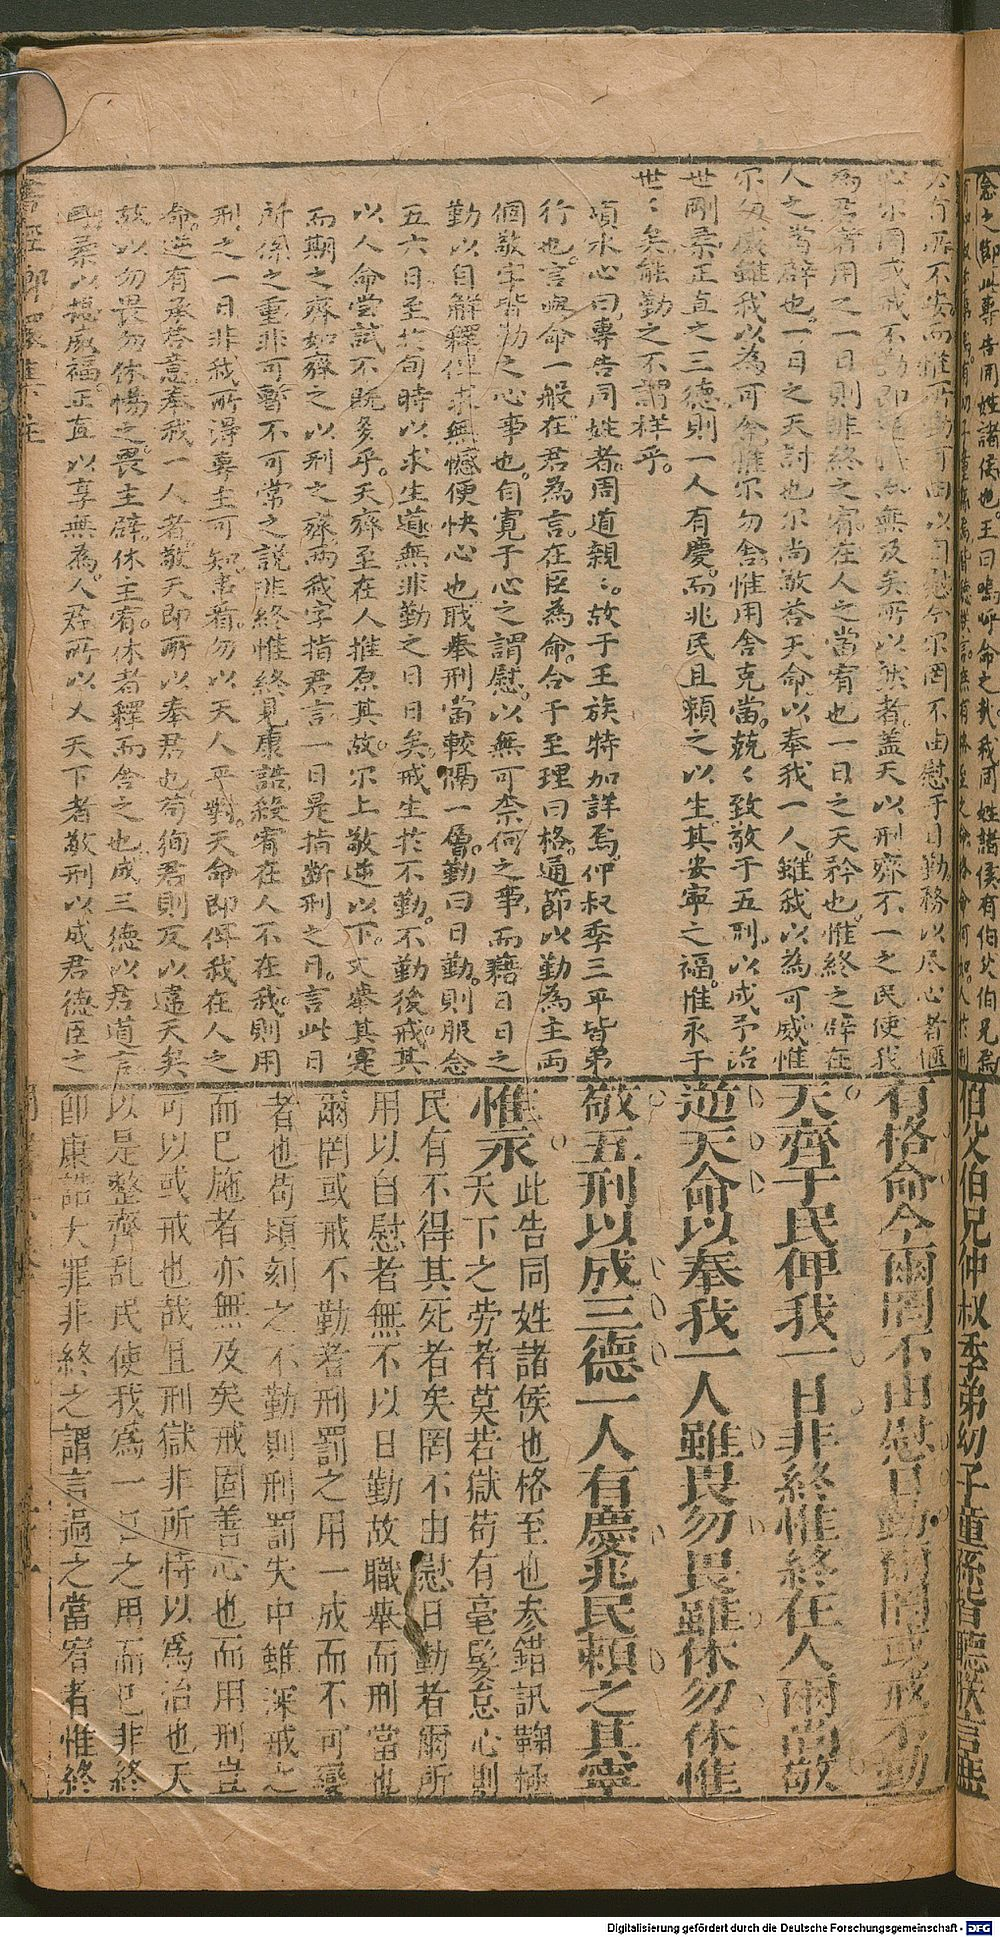 念之此專告同姓諸侯也王曰嗚呼命之哉我同姓諸侯有伯父伯兄焉
心不罔或戒不勤即無及矣所以然者蓋天以刑齊不一之民使我
為君者用之一日則非終之宥在人之當宥也一日之天矜也惟終之辟在
人之當辟也一日之天討也尔尚敬答天命以奉我一人雖我以為可威惟
尔勿威雖我以為可舍惟尔勿舍惟用舍克當兢〻致敬于五刑以成予治
世剛柔正直之三德則一人有慶而兆民且賴之以生其安寧之福惟永于
世〻矣能勤之不謂祥乎
項水心曰專告同姓者周道親〻故于王族特加詳焉仲叔季三平皆弟
行也言與命一般在君為言在臣為命合于至理曰格通節以勤為主兩
個敬字皆勤之心事也自寬于心之謂慰以無可奈何之事而藉日日之
勤以自解釋但求無憾便快心也職舉刑當較隔一層勤曰日勤則服念
五六日至於旬時以求生道無非勤之日日矣戒生於不勤不勤後戒其
以人命嘗試不既多乎天齊至在人推原其故尔上敬逆以下文舉其寔
而期之齊如齊之以刑之齊兩我字指君言一日是指斷刑之日言此日
所係之重非可暫不可常之說非終惟終見康誥殺宥在人不在我則用
刑之一日非我所得專主可知書着勿以天人平對天命即俾我在人之
命逆有承答意奉我一人者敬天即所以奉君也苟徇君則反以違天矣
故以勿畏勿休惕之畏主辟休主宥休者釋而舍之也成三德以君道言
剛柔以威福正直以享無為人君所以大天下者敬刑以成君德臣之
伯父伯兄仲叔季弟幼子童孫皆聽朕言庶
有格命今爾罔不由慰日勤爾罔或戒不勤
天齊于民俾我一日非終惟終在人爾尚敬
逆天命以奉我一人雖畏勿畏雖休勿休惟
敬五刑以成三德一人有慶兆民賴之其寧
惟永 此告同姓諸侯也格至也參錯訊鞫極
天下之勞者莫若獄苟有毫髮怠心則
民有不得其死者矣罔不由慰日勤者爾所
用以自慰者無不以日勤故職舉而刑當也
爾罔或戒不勤者刑罰之用一成而不可變
者也苟頃刻之不勤則刑罰失中雖深戒之
而已施者亦無及矣戒固善心也而用刑豈
可以或戒也哉且刑獄非所恃以爲治也天
以是整齊亂民使我爲一日之用而已非終
即康誥大罪非終之謂言過之當宥者惟終
Digitalisierung gefördert durch die Deutsche Forschungsgemeinschaft - DFG